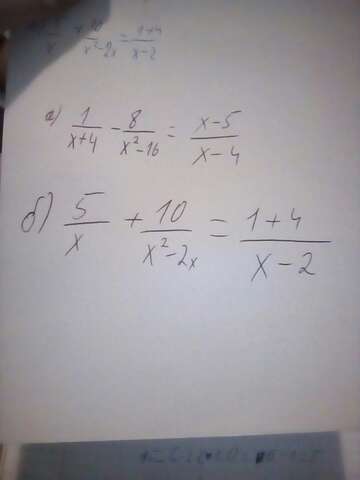 а) 1/(x+4) - 8/(x²-16) = (x-5)/(x-4)
б) 5/x + 10/(x²-2x) = (1+4)/(x-2)